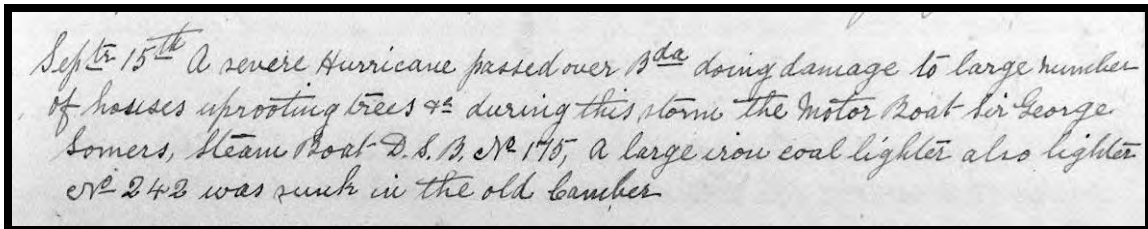 Septr 15th A severe Hurricane passed over Bda doing damage to large number
of houses uprooting trees &c during this storm the Motor Boat Sir George
Somers, Steam Boat D.S.B. No 175, A large iron coal lighter also lighter
No 242 was sunk in the old Camber